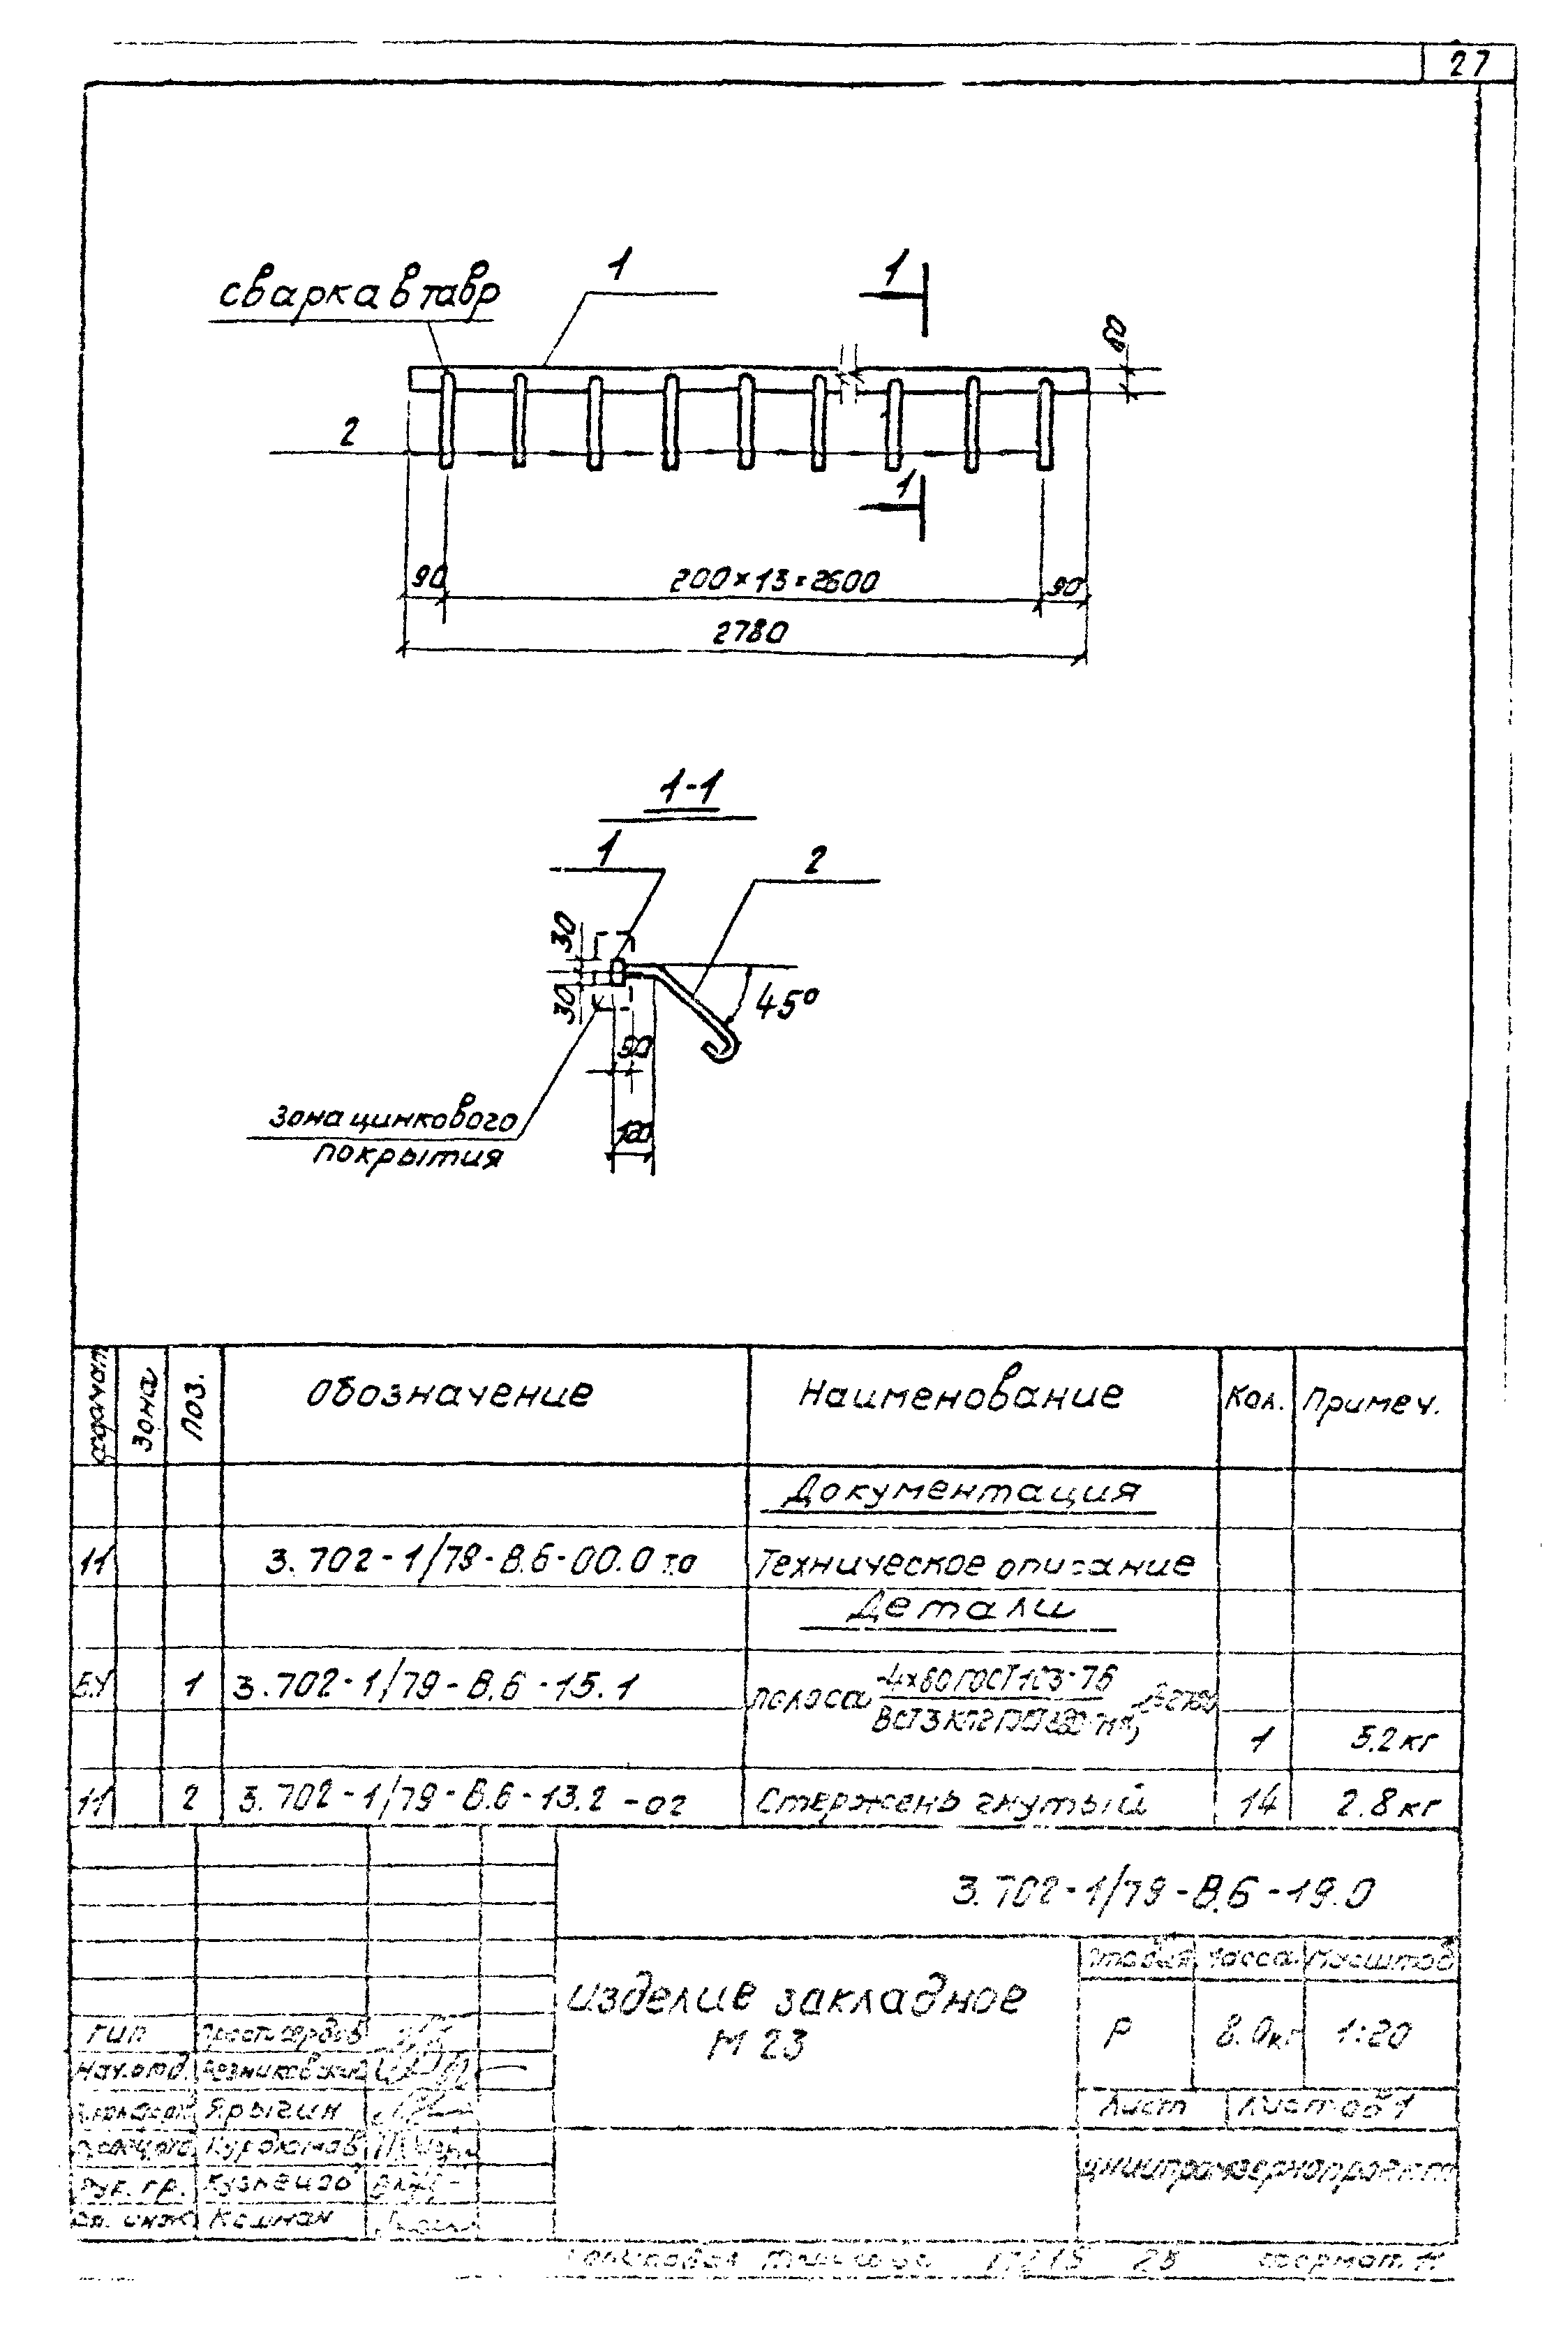 27
сварка в тавр
1
1
60
2
1
90
200×13=2600
90
2780
1-1
1
2
30
30
45°
90
120
зона цинкового
покрытия
формат
Зона
Поз.
Обозначение
Наименование
Кол.
Примеч.
Документация
11
3.702-1/79-В.6-00.0 то
Техническое описание
Детали
БЧ
1
3.702-1/79-В.6-15.1
полоса
-4×60 ГОСТ 103-76
1
5.2 кг
11
2
3.702-1/79-В.6-13.2-ог
Стержень гнутый
14
2.8 кг
3.702-1/79-В.6-19.0
изделие закладное
М 23
Масса
Масштаб
Р
8.0кг
1:20
Лист
Листов 1
ЦНИИпромзернопроект
ГИП
Нач.отд.
Резниковский
Ярыгин
Рук. гр.
Кузнецов
формат 11